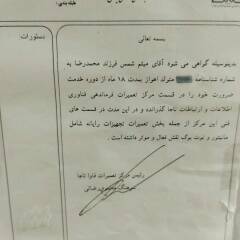 طبقه بندی:
دستورات
بسمه تعالی
بدینوسیله گواهی می شود آقای میثم شمس فرزند محمدرضا به
شماره شناسنامه متولد اهواز بمدت ۱۸ ماه از دوره خدمت
ضرورت خود را در قسمت مرکز تعمیرات فرماندهی فناوری
اطلاعات و ارتباطات ناجا گذرانده و در این مدت در قسمت های
فنی این مرکز از جمله بخش تعمیرات تجهیزات رایانه شامل
مانیتور و نوت بوک نقش فعال و موثر داشته است .
رئیس مرکز تعمیرات فاوا ناجا
سرهنگ